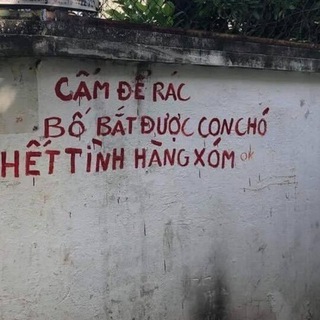 CẤM ĐỂ RÁC
BỐ BẮT ĐƯỢC CON CHÓ
HẾT TÌNH HÀNG XÓM ok